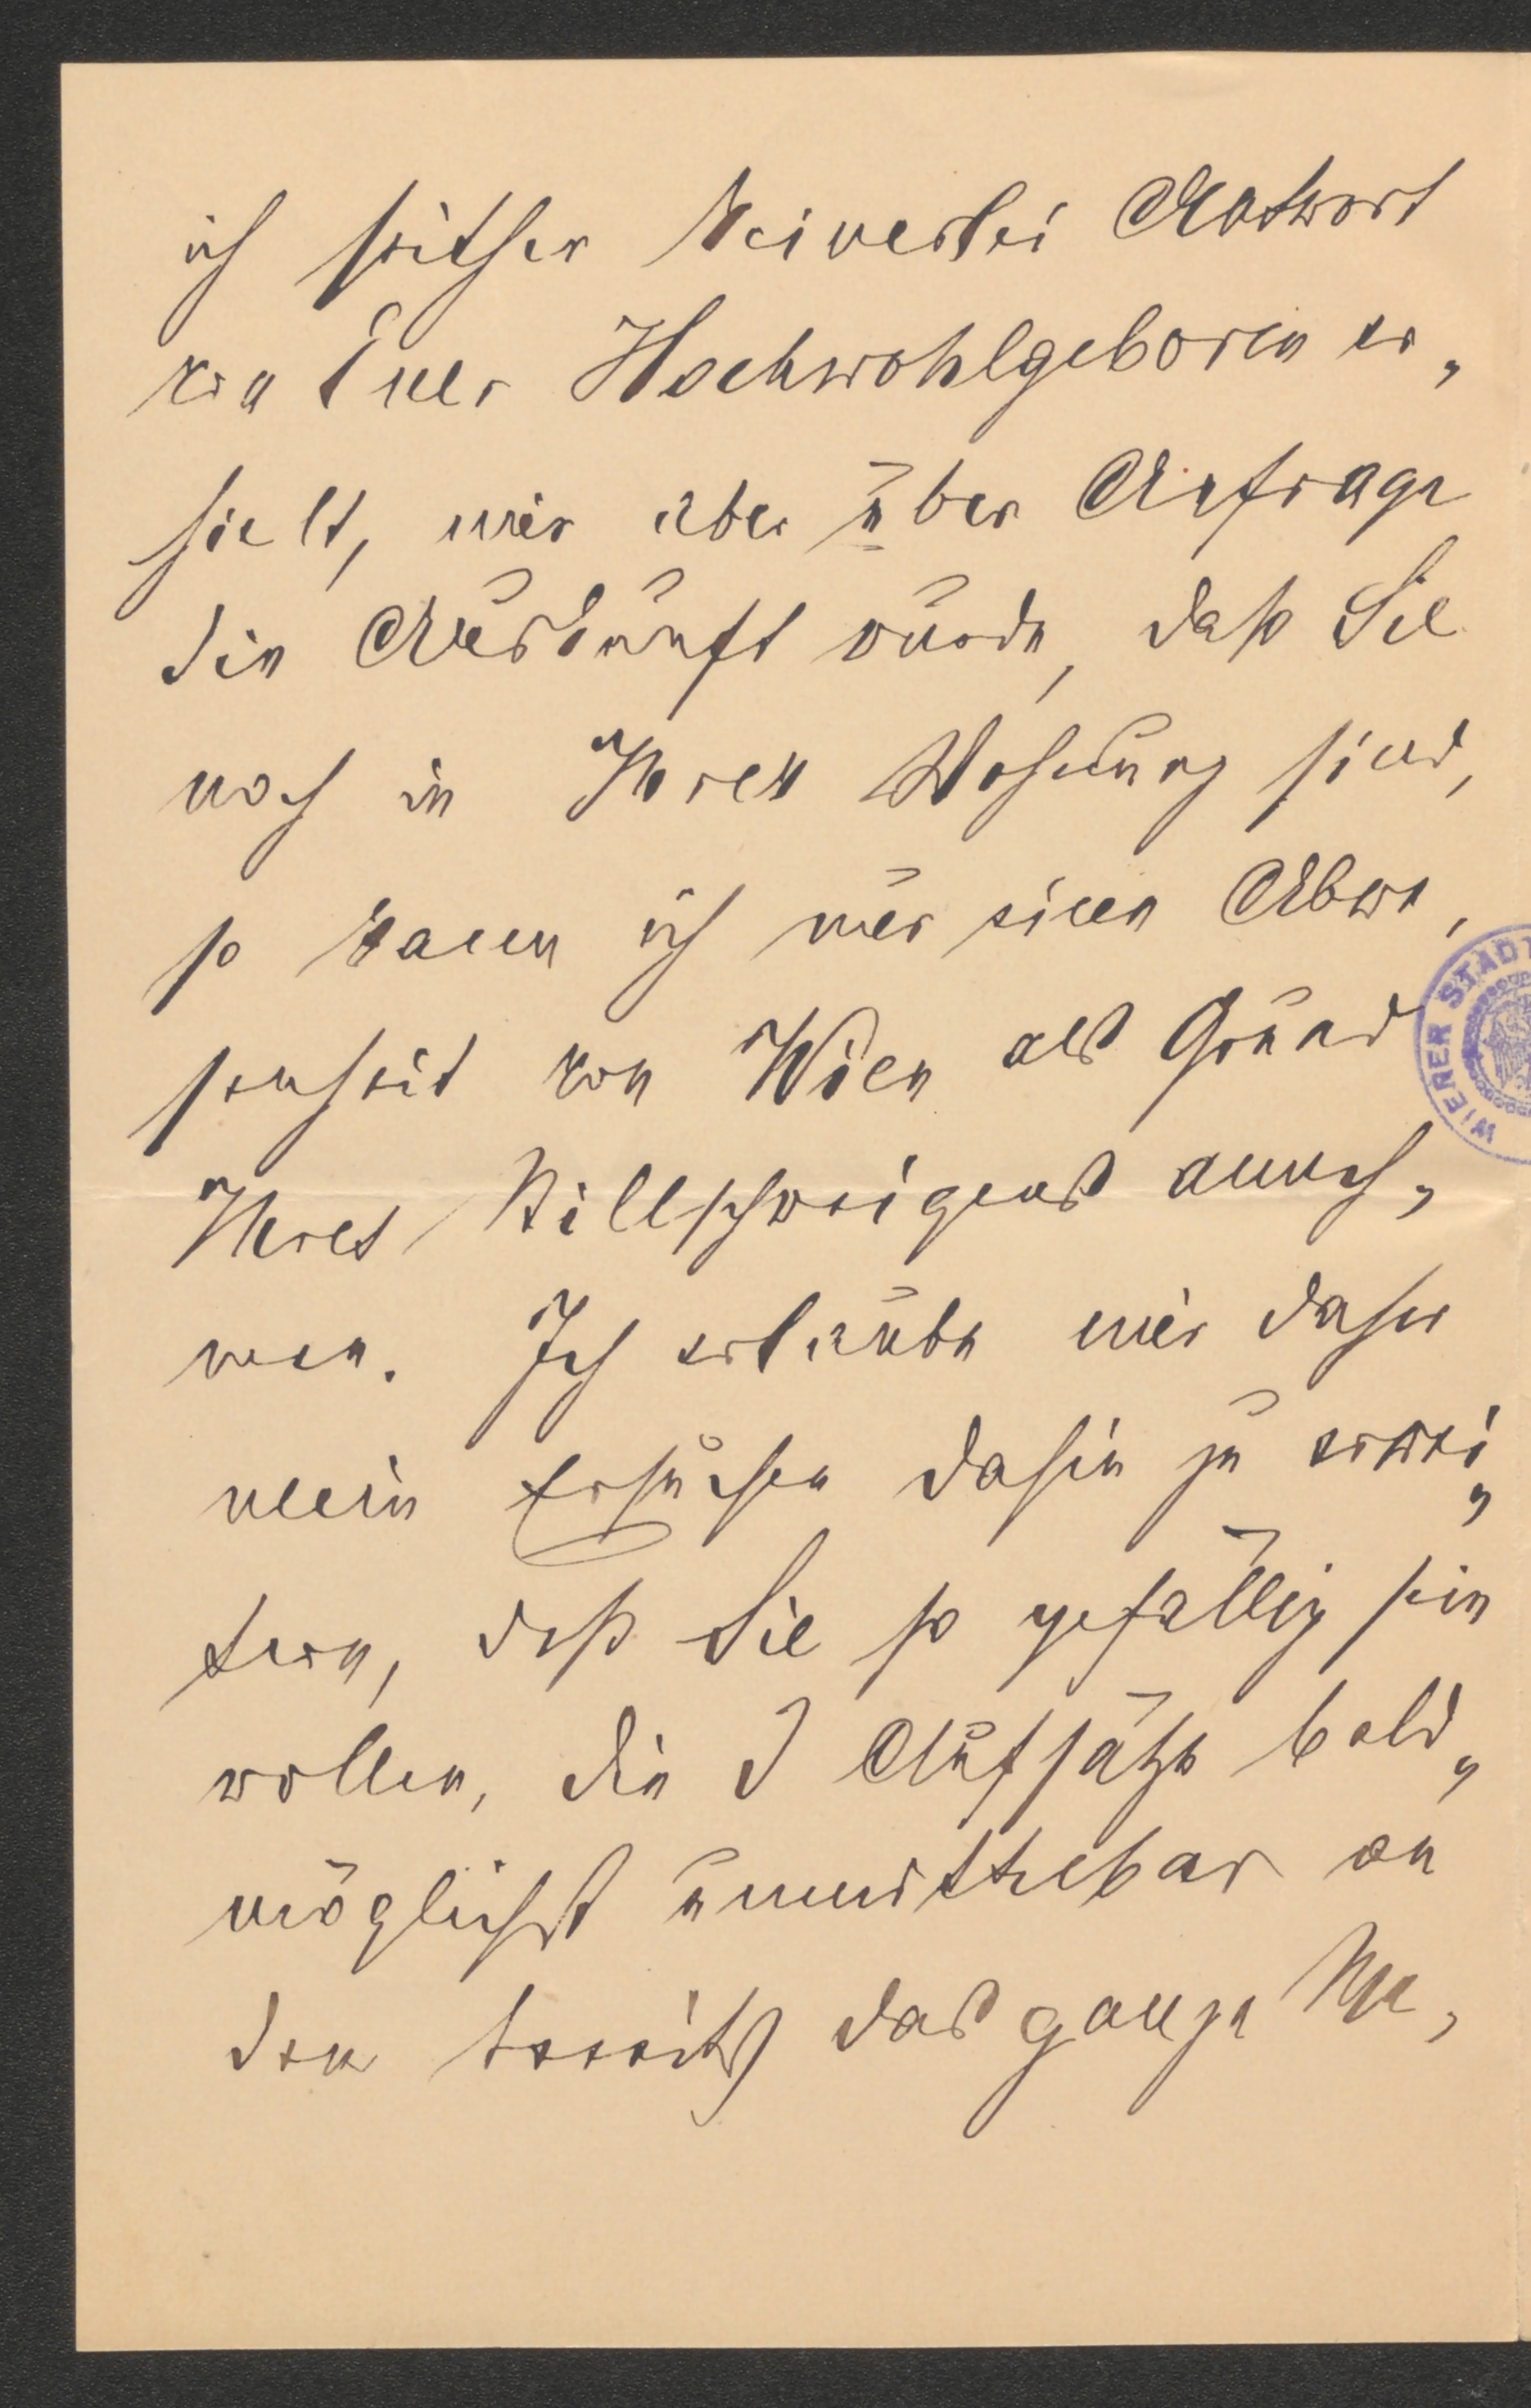 ich seither keinerlei Antwort
von Euer Hochwohlgeboren er„
hielt, mir aber über Anfrage
die Auskunft wurde, daß Sie
noch in Ihrer Wohnung sind,
so kann ich nur eine Abwe„
senheit von Wien als Grund
Ihres Stillschweigens anneh„
men. Ich erlaube mir daher
mein Ersuchen dahin zu erwei„
tern, daß Sie so gefällig sein
wollen, die Aufsätze bald„
möglichst unmittelbar an
den bereits das ganze
WIENER STADT